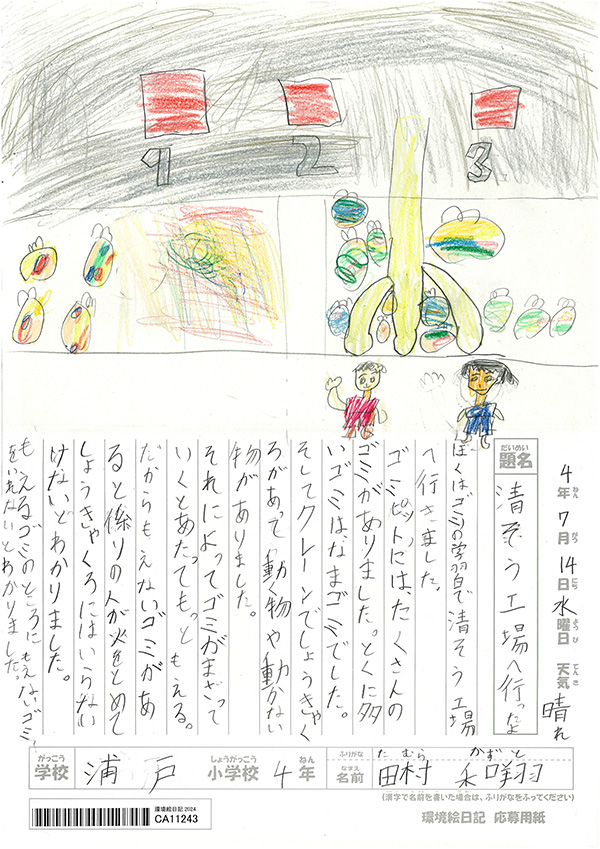 1
2
3
4年7月14日水曜日 天気晴れ
ねん がつ にち ようび てんき
だいめい
題名 清そう工場へ行ったよ
ぼくはゴミの学習で清そう工場
へ行きました。
ゴミピットには、たくさんの
ゴミがありました。とくに多
いゴミは、なまゴミでした。
そしてクレーンでしょうきゃく
ろがあって動く物や動かない
物がありました。
それによってゴミがまざって
いくとあたってもっともえる。
だからもえないゴミがあ
ると係りの人が火をとめて
しょうきゃくろにはいらない
けないとわかりました。
もえるゴミのところにもえないゴミ
をいれないとわかりました。
がっこう しょうがっこう ねん
学校 浦戸 小学校 4年
ふりがな たむら かずと
なまえ
名前 田村 和翔
(漢字で名前を書いた場合は、ふりがなをふってください)
環境絵日記 2024
CA11243
環境絵日記 応募用紙